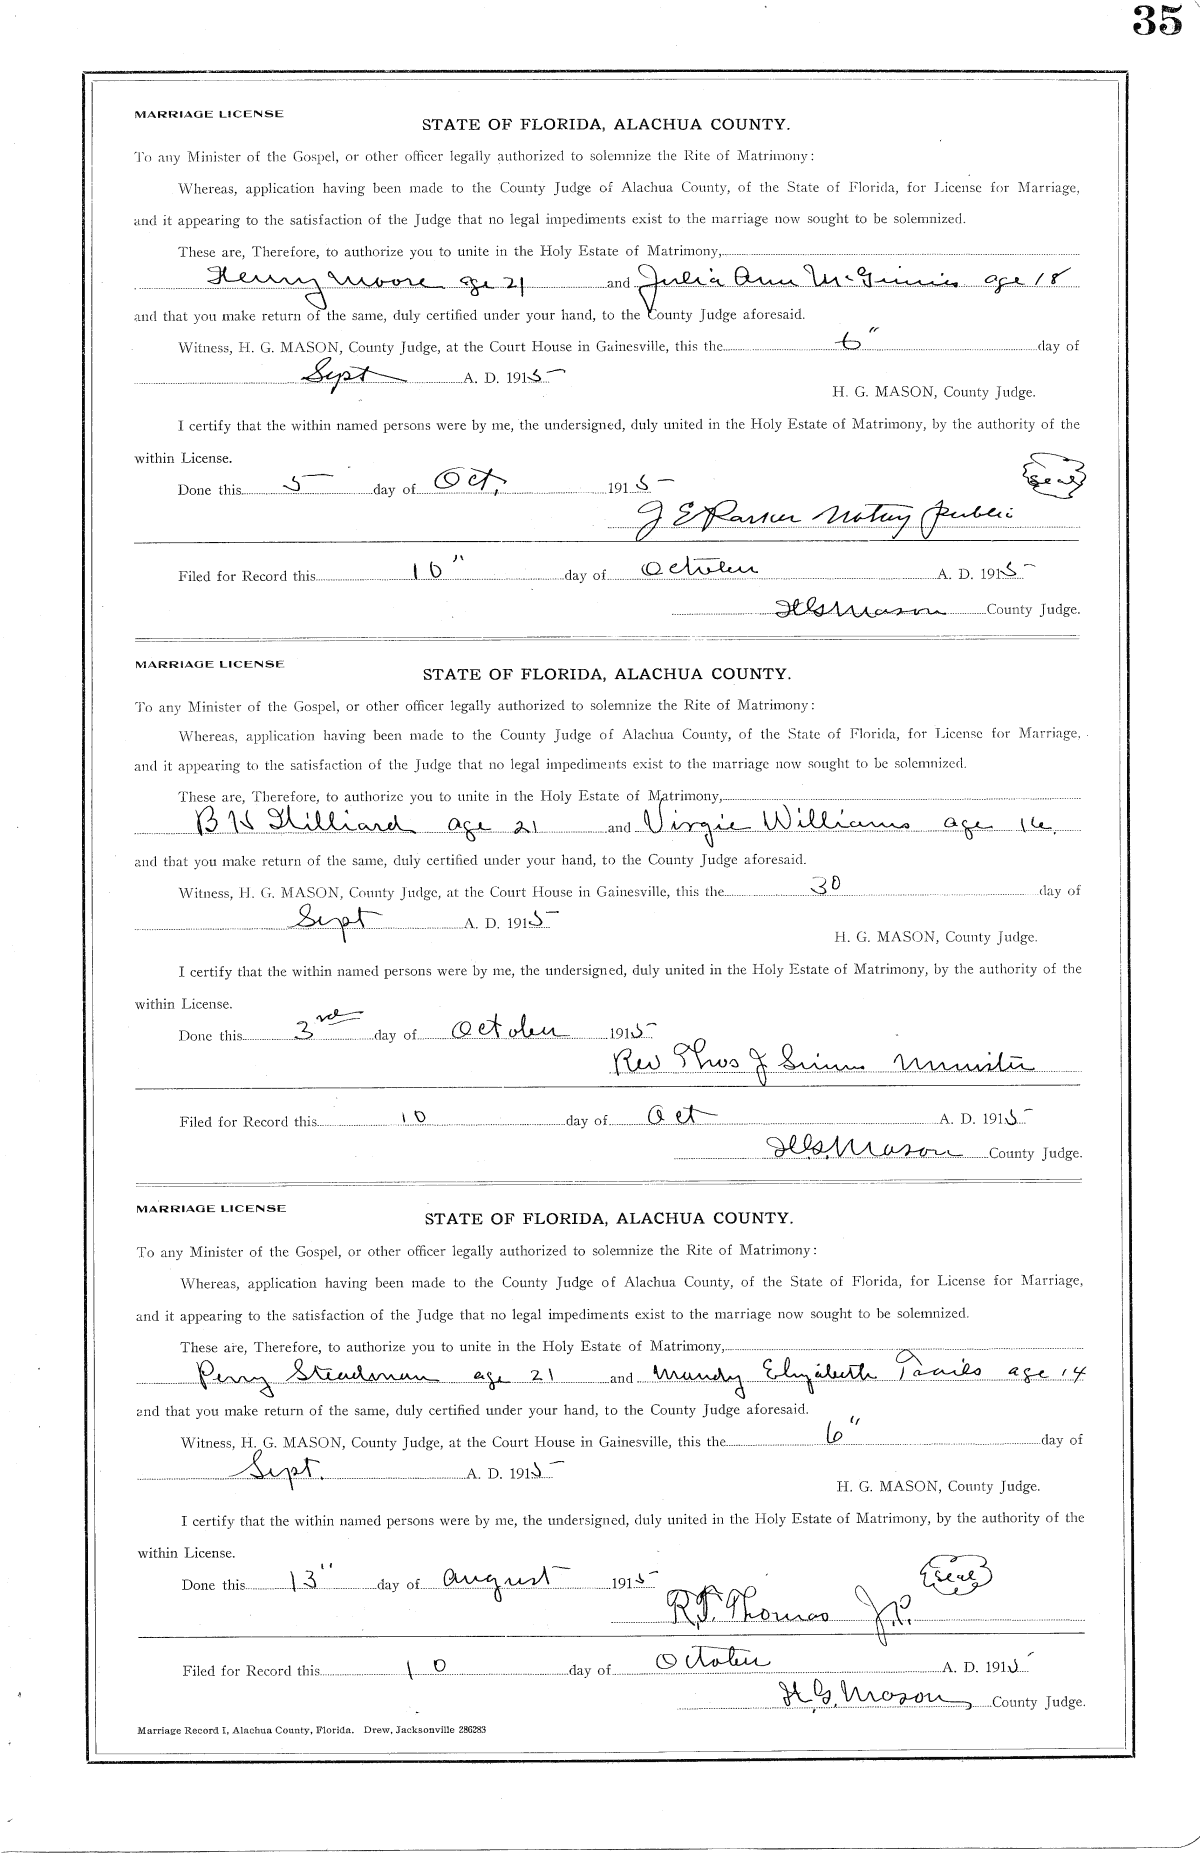 35
MARRIAGE LICENSE
STATE OF FLORIDA, ALACHUA COUNTY.
To any Minister of the Gospel, or other officer legally authorized to solemnize the Rite of Matrimony:
Whereas, application having been made to the County Judge of Alachua County, of the State of Florida, for License for Marriage,
and it appearing to the satisfaction of the Judge that no legal impediments exist to the marriage now sought to be solemnized.
These are, Therefore, to authorize you to unite in the Holy Estate of Matrimony,
Henry Moore age 21 and Julia Ann McGinnis age 18
and that you make return of the same, duly certified under your hand, to the County Judge aforesaid.
Witness, H. G. MASON, County Judge, at the Court House in Gainesville, this the 6" day of
Sept A. D. 1915
H. G. MASON, County Judge.
I certify that the within named persons were by me, the undersigned, duly united in the Holy Estate of Matrimony, by the authority of the
within License.
Done this 5 day of Oct, 1915
Seal
J E Notary public
Filed for Record this 10" day of October A. D. 1915
H G Mason County Judge.
MARRIAGE LICENSE
STATE OF FLORIDA, ALACHUA COUNTY.
To any Minister of the Gospel, or other officer legally authorized to solemnize the Rite of Matrimony:
Whereas, application having been made to the County Judge of Alachua County, of the State of Florida, for License for Marriage,
and it appearing to the satisfaction of the Judge that no legal impediments exist to the marriage now sought to be solemnized.
These are, Therefore, to authorize you to unite in the Holy Estate of Matrimony,
B H Hilliard age 21 and Virgie Williams age 16
and that you make return of the same, duly certified under your hand, to the County Judge aforesaid.
Witness, H. G. MASON, County Judge, at the Court House in Gainesville, this the 30 day of
Sept A. D. 1915
H. G. MASON, County Judge.
I certify that the within named persons were by me, the undersigned, duly united in the Holy Estate of Matrimony, by the authority of the
within License.
Done this 3rd day of October 1915
Rev Thos J Minister
Filed for Record this 10 day of Oct A. D. 1915
H.G. Mason County Judge.
MARRIAGE LICENSE
STATE OF FLORIDA, ALACHUA COUNTY.
To any Minister of the Gospel, or other officer legally authorized to solemnize the Rite of Matrimony:
Whereas, application having been made to the County Judge of Alachua County, of the State of Florida, for License for Marriage,
and it appearing to the satisfaction of the Judge that no legal impediments exist to the marriage now sought to be solemnized.
These are, Therefore, to authorize you to unite in the Holy Estate of Matrimony,
Perry Steadman age 21 and Mandy Elizabeth age 14
and that you make return of the same, duly certified under your hand, to the County Judge aforesaid.
Witness, H. G. MASON, County Judge, at the Court House in Gainesville, this the 6" day of
Sept. A. D. 1915
H. G. MASON, County Judge.
I certify that the within named persons were by me, the undersigned, duly united in the Holy Estate of Matrimony, by the authority of the
within License.
Done this 13" day of August 1915
Seal
R.F. Thomas J.P.
Filed for Record this 10 day of October A. D. 1915
H.G. Mason, County Judge.
Marriage Record I, Alachua County, Florida. Drew, Jacksonville 286283